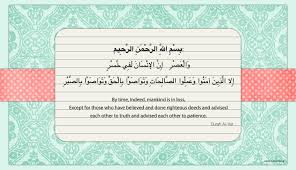 بِسْمِ اللهِ الرَّحْمٰنِ الرَّحِيْمِ
وَالْعَصْرِ إِنَّ الْإِنْسَانَ لَفِي خُسْرٍ
إِلَّا الَّذِينَ آمَنُوا وَعَمِلُوا الصَّالِحَاتِ وَتَوَاصَوْا بِالْحَقِّ وَتَوَاصَوْا بِالصَّبْرِ
By time, Indeed, mankind is in loss,
Except for those who have believed and done righteous deeds and advised
each other to truth and advised each other to patience.